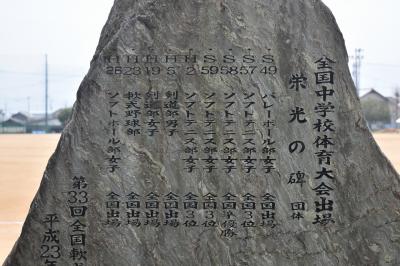 全国中学校体育大会出場
栄光の碑 団体
S・49 バレーボール部女子 全国出場
S・57 ソフトテニス部女子 全国3位
S・58 ソフトテニス部女子 全国準優勝
S・59 ソフトテニス部女子 全国3位
H・2 ソフトテニス部女子 全国3位
H・5 剣道部男子 全国出場
H・19 剣道部女子 全国出場
H・23 軟式野球部 全国出場
H・26 ソフトボール部女子 全国出場
第33回全国軟
平成23年